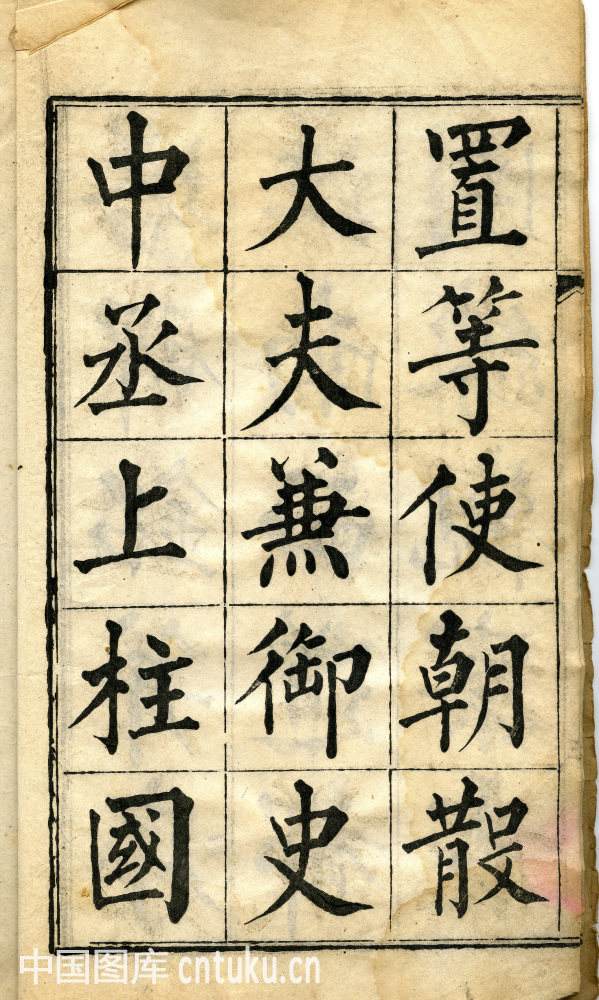 置等使朝散
大夫兼御史
中丞上柱國
中国图库 cntuku.cn